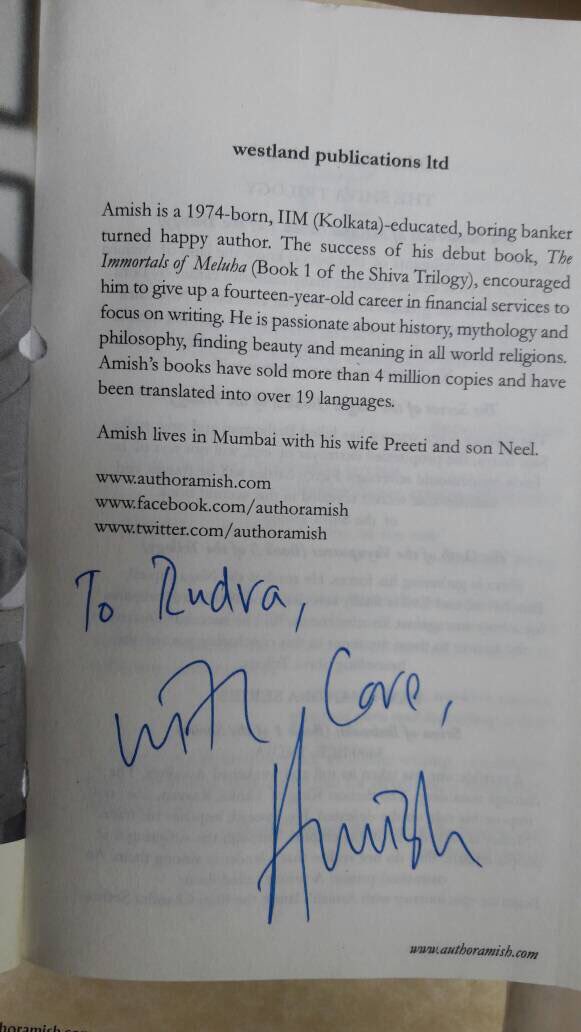 westland publications ltd
Amish is a 1974-born, IIM (Kolkata)-educated, boring banker
turned happy author. The success of his debut book, The
Immortals of Meluha (Book 1 of the Shiva Trilogy), encouraged
him to give up a fourteen-year-old career in financial services to
focus on writing. He is passionate about history, mythology and
philosophy, finding beauty and meaning in all world religions.
Amish's books have sold more than 4 million copies and have
been translated into over 19 languages.
Amish lives in Mumbai with his wife Preeti and son Neel.
www.authoramish.com
www.facebook.com/authoramish
www.twitter.com/authoramish
To Rudra,
with Love,
Amish
www.authoramish.com